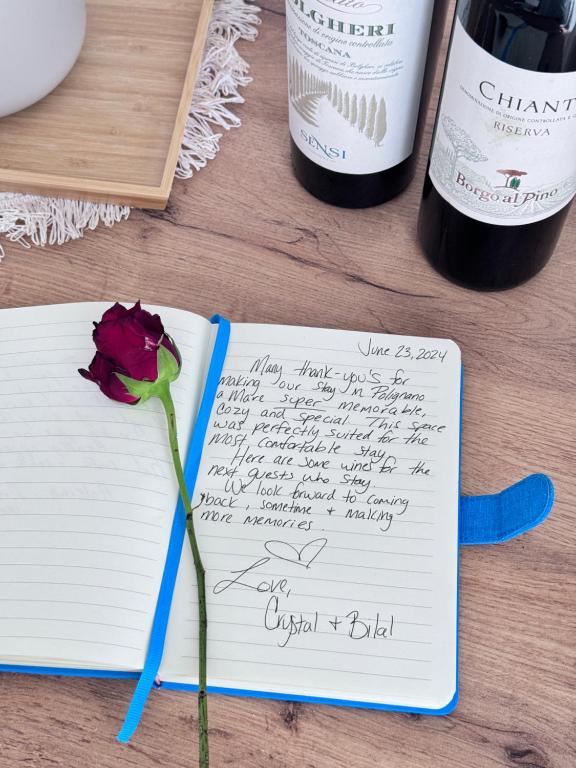 OLGHERI
TOSCANA
SENSI
CHIANT
RISERVA
Borgo al Pino
June 23, 2024
Many thank-you's for
making our stay in Polignano
a Mare super memorable,
cozy and special. This space
was perfectly suited for the
most comfortable stay.
Here are some wines for the
next guests who stay.
We look forward to coming
back, sometime + making
more memories.
Love,
Crystal + Bilal